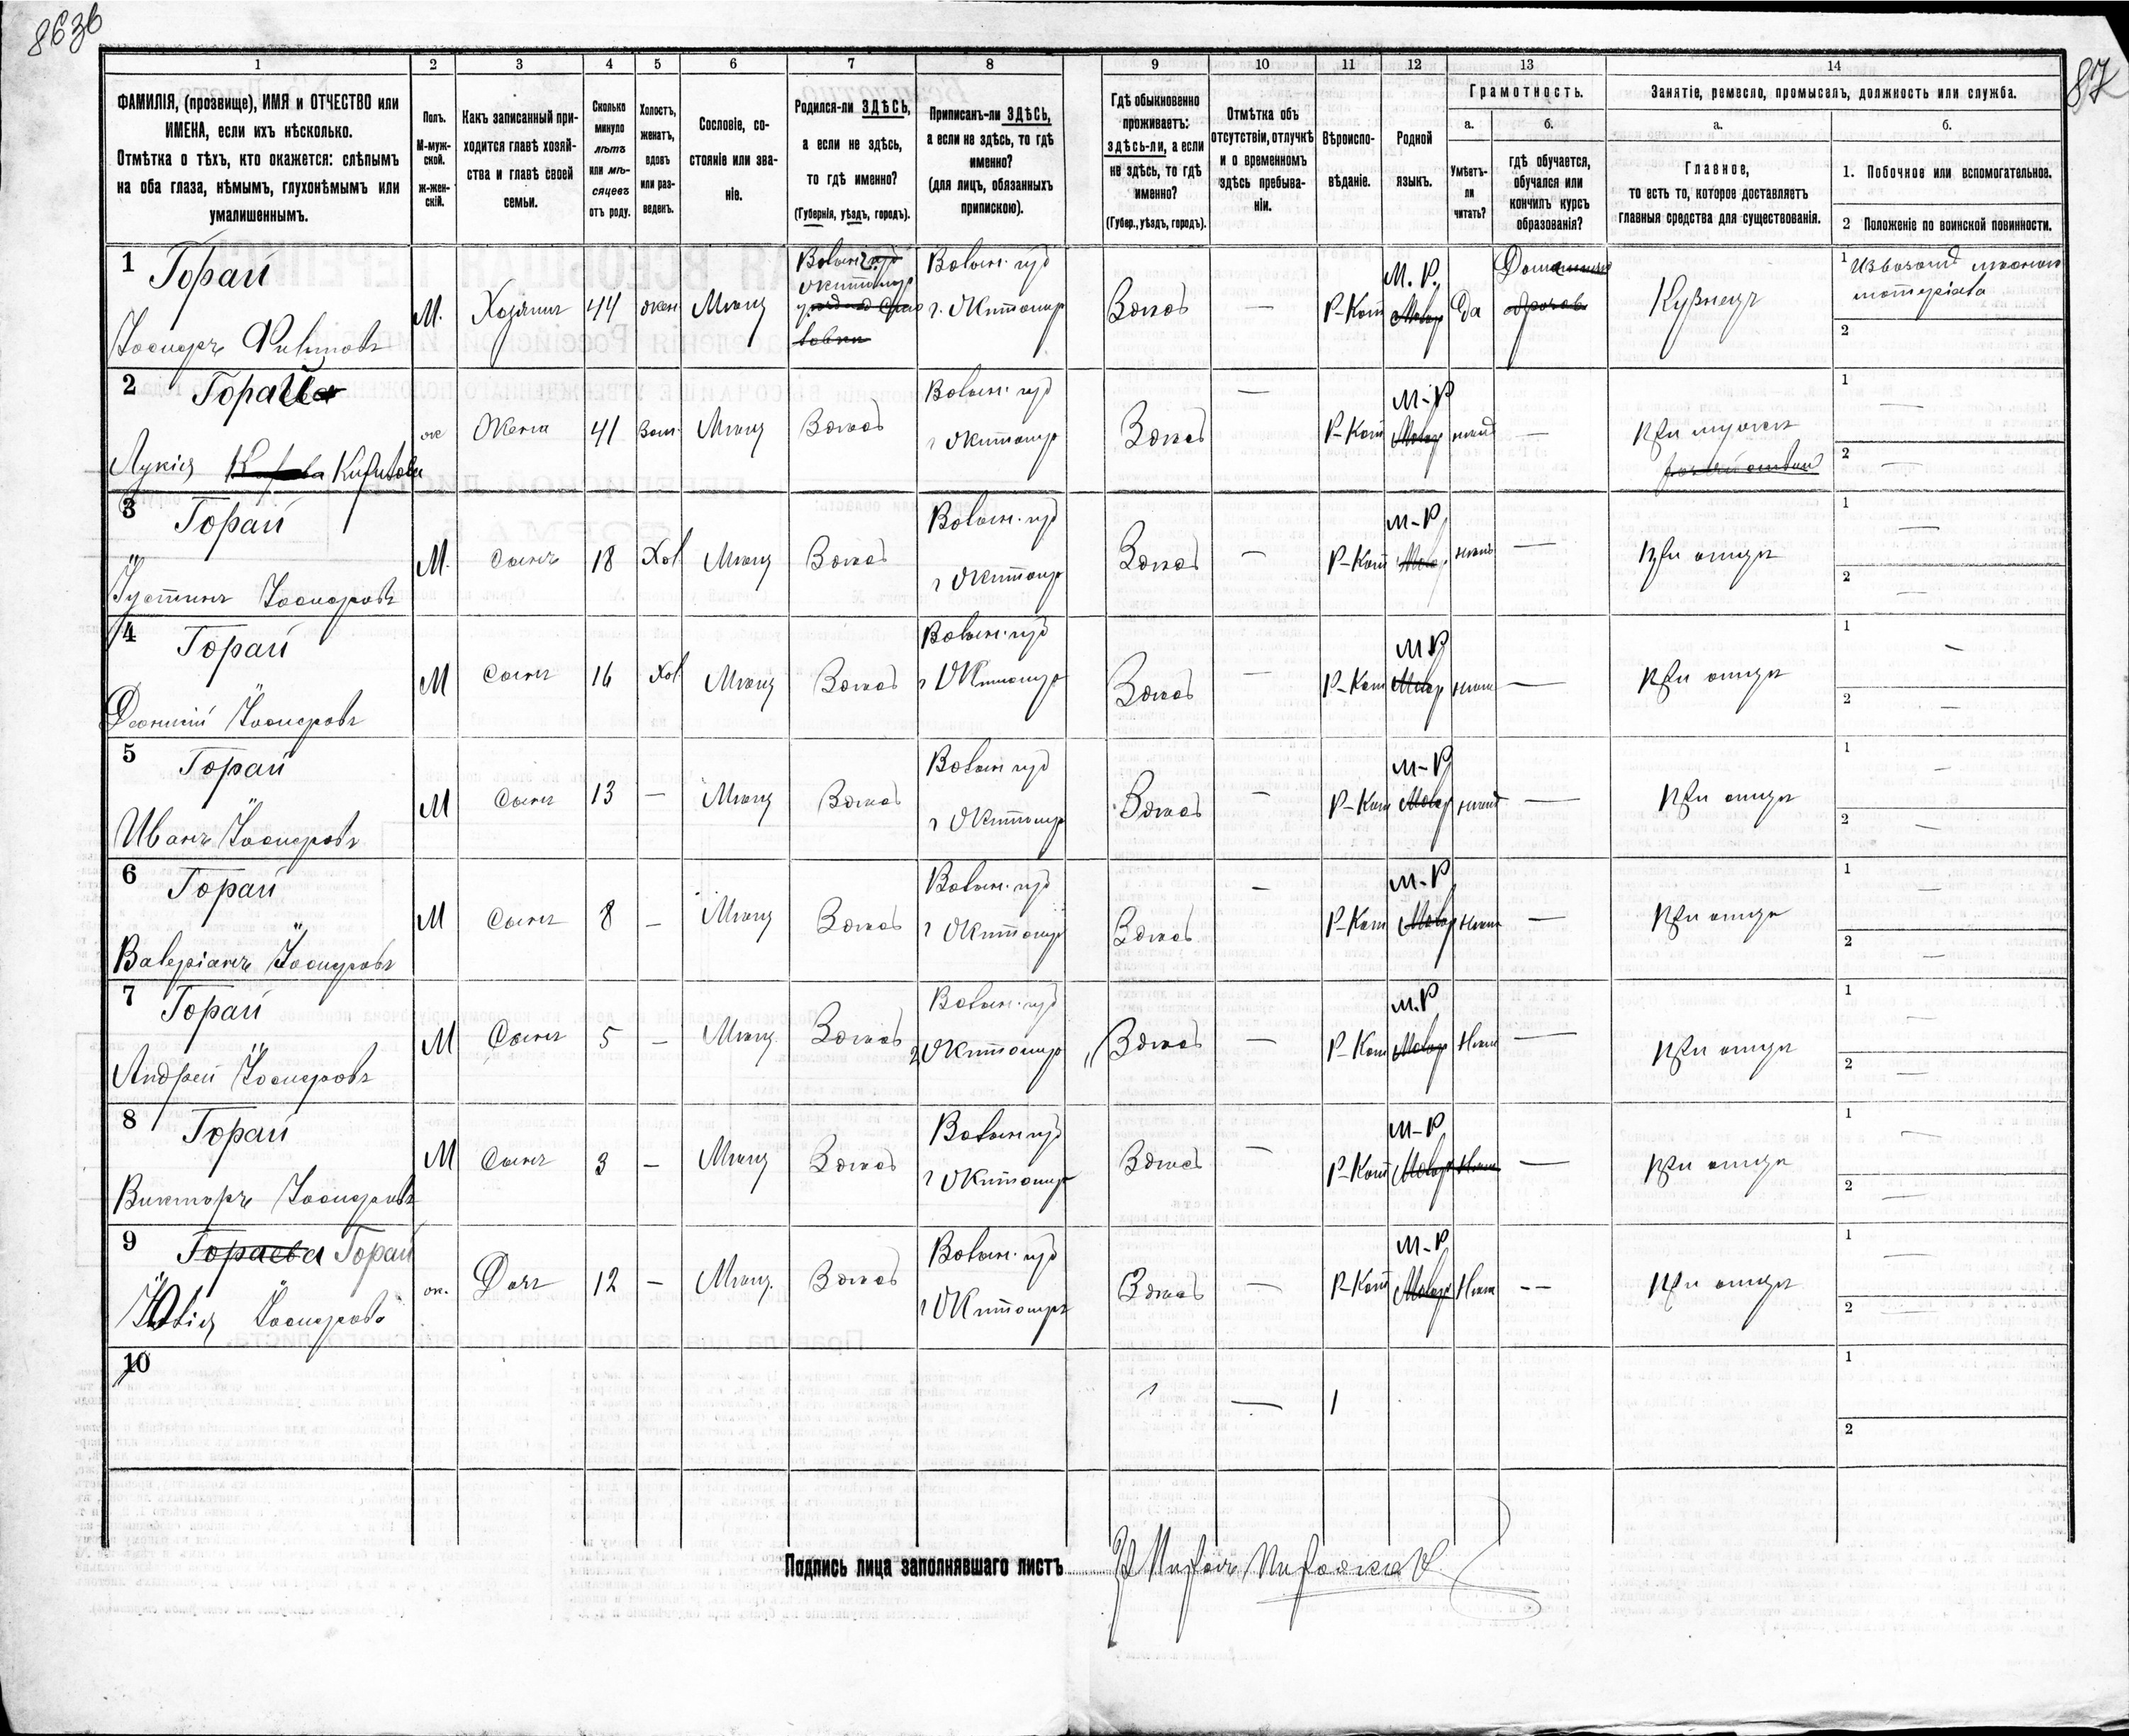 863б
87
1 2 3 4 5 6 7 8 9 10 11 12 13 14
ФАМИЛІЯ, (прозвище), ИМЯ и ОТЧЕСТВО или
ИМЕНА, если ихъ нѣсколько.
Отмѣтка о тѣхъ, кто окажется: слѣпымъ
на оба глаза, нѣмымъ, глухонѣмымъ или
умалишеннымъ.
Полъ.
М-муж-
ской.
ж-жен-
скій.
Какъ записанный при-
ходится главѣ хозяй-
ства и главѣ своей
семьи.
Сколько
минуло
лѣтъ
или мѣ-
сяцевъ
отъ роду.
Холостъ,
женатъ,
вдовъ
или раз-
веденъ.
Сословіе, со-
стояніе или зва-
ніе.
Родился-ли ЗДѢСЬ,
а если не здѣсь,
то гдѣ именно?
(Губернія, уѣздъ, городъ).
Приписанъ-ли ЗДѢСЬ,
а если не здѣсь, то гдѣ
именно?
(для лицъ, обязанныхъ
припискою).
Гдѣ обыкновенно
проживаетъ:
здѣсь-ли, а если
не здѣсь, то гдѣ
именно?
(Губер., уѣздъ, городъ).
Отмѣтка объ
отсутствіи, отлучкѣ
и о временномъ
здѣсь пребыва-
ніи.
Вѣроиспо-
вѣданіе.
Родной
языкъ.
Грамотность.
а.
Умѣетъ-
ли
читать?
б.
гдѣ обучается,
обучался или
кончилъ курсъ
образованія?
Занятіе, ремесло, промыселъ, должность или служба.
а.
Главное,
то есть то, которое доставляетъ
главныя средства для существованія.
б.
1. Побочное или вспомогательное.
2 Положеніе по воинской повинности.
1 Горай
М. Хозяинъ 44 жен Мѣщ
Волын. губ
г. Житомир
Здѣсь — Р-Кат М. Р. Да Кузнецъ
1
2
2
ж Жена 41 Зам. Мѣщ Здѣсь
Волын. губ
г Житомир
Здѣсь — Р-Кат М-Р нѣтъ — При мужѣ
1 —
2 —
3 Горай
Іустинъ Іосифовъ
М. Сынъ 18 Хол Мѣщ Здѣсь
Волын. губ
г Житомир
Здѣсь — Р-Кат М-Р нѣтъ — При отцѣ
1 —
2 —
4 Горай
Діонисій Іосифовъ
М Сынъ 16 Хол Мѣщ Здѣсь
Волын. губ
г Житомир
Здѣсь — Р-Кат М Р нѣтъ — При отцѣ
1 —
2 —
5 Горай
Иванъ Іосифовъ
М Сынъ 13 — Мѣщ Здѣсь
Волын губ
г Житомир
Здѣсь — Р-Кат М-Р нѣтъ — При отцѣ
1 —
2 —
6 Горай
Валеріанъ Іосифовъ
М Сынъ 8 — Мѣщ Здѣсь
Волын. губ
г Житомир
Здѣсь — Р-Кат М-Р Нѣтъ — При отцѣ
1 —
2 —
7 Горай
Андрей Іосифовъ
М Сынъ 5 — Мѣщ Здѣсь
Волын. губ
г Житомир
Здѣсь — Р-Кат М.Р Нѣтъ — При отцѣ
1 —
2 —
8 Горай
Викторъ Іосифовъ
М Сынъ 3 — Мѣщ Здѣсь
Волын губ
г Житомир
Здѣсь — Р-Кат М-Р — При отцѣ
1 —
2 —
9 Гораева Горай
Іосифова
ж. Дочь 12 — Мѣщ. Здѣсь
Волын. губ
г Житомиръ
Здѣсь — Р-Кат М-Р Нѣтъ — При отцѣ
1 —
2 —
10
1
2
Подпись лица заполнявшаго листъ